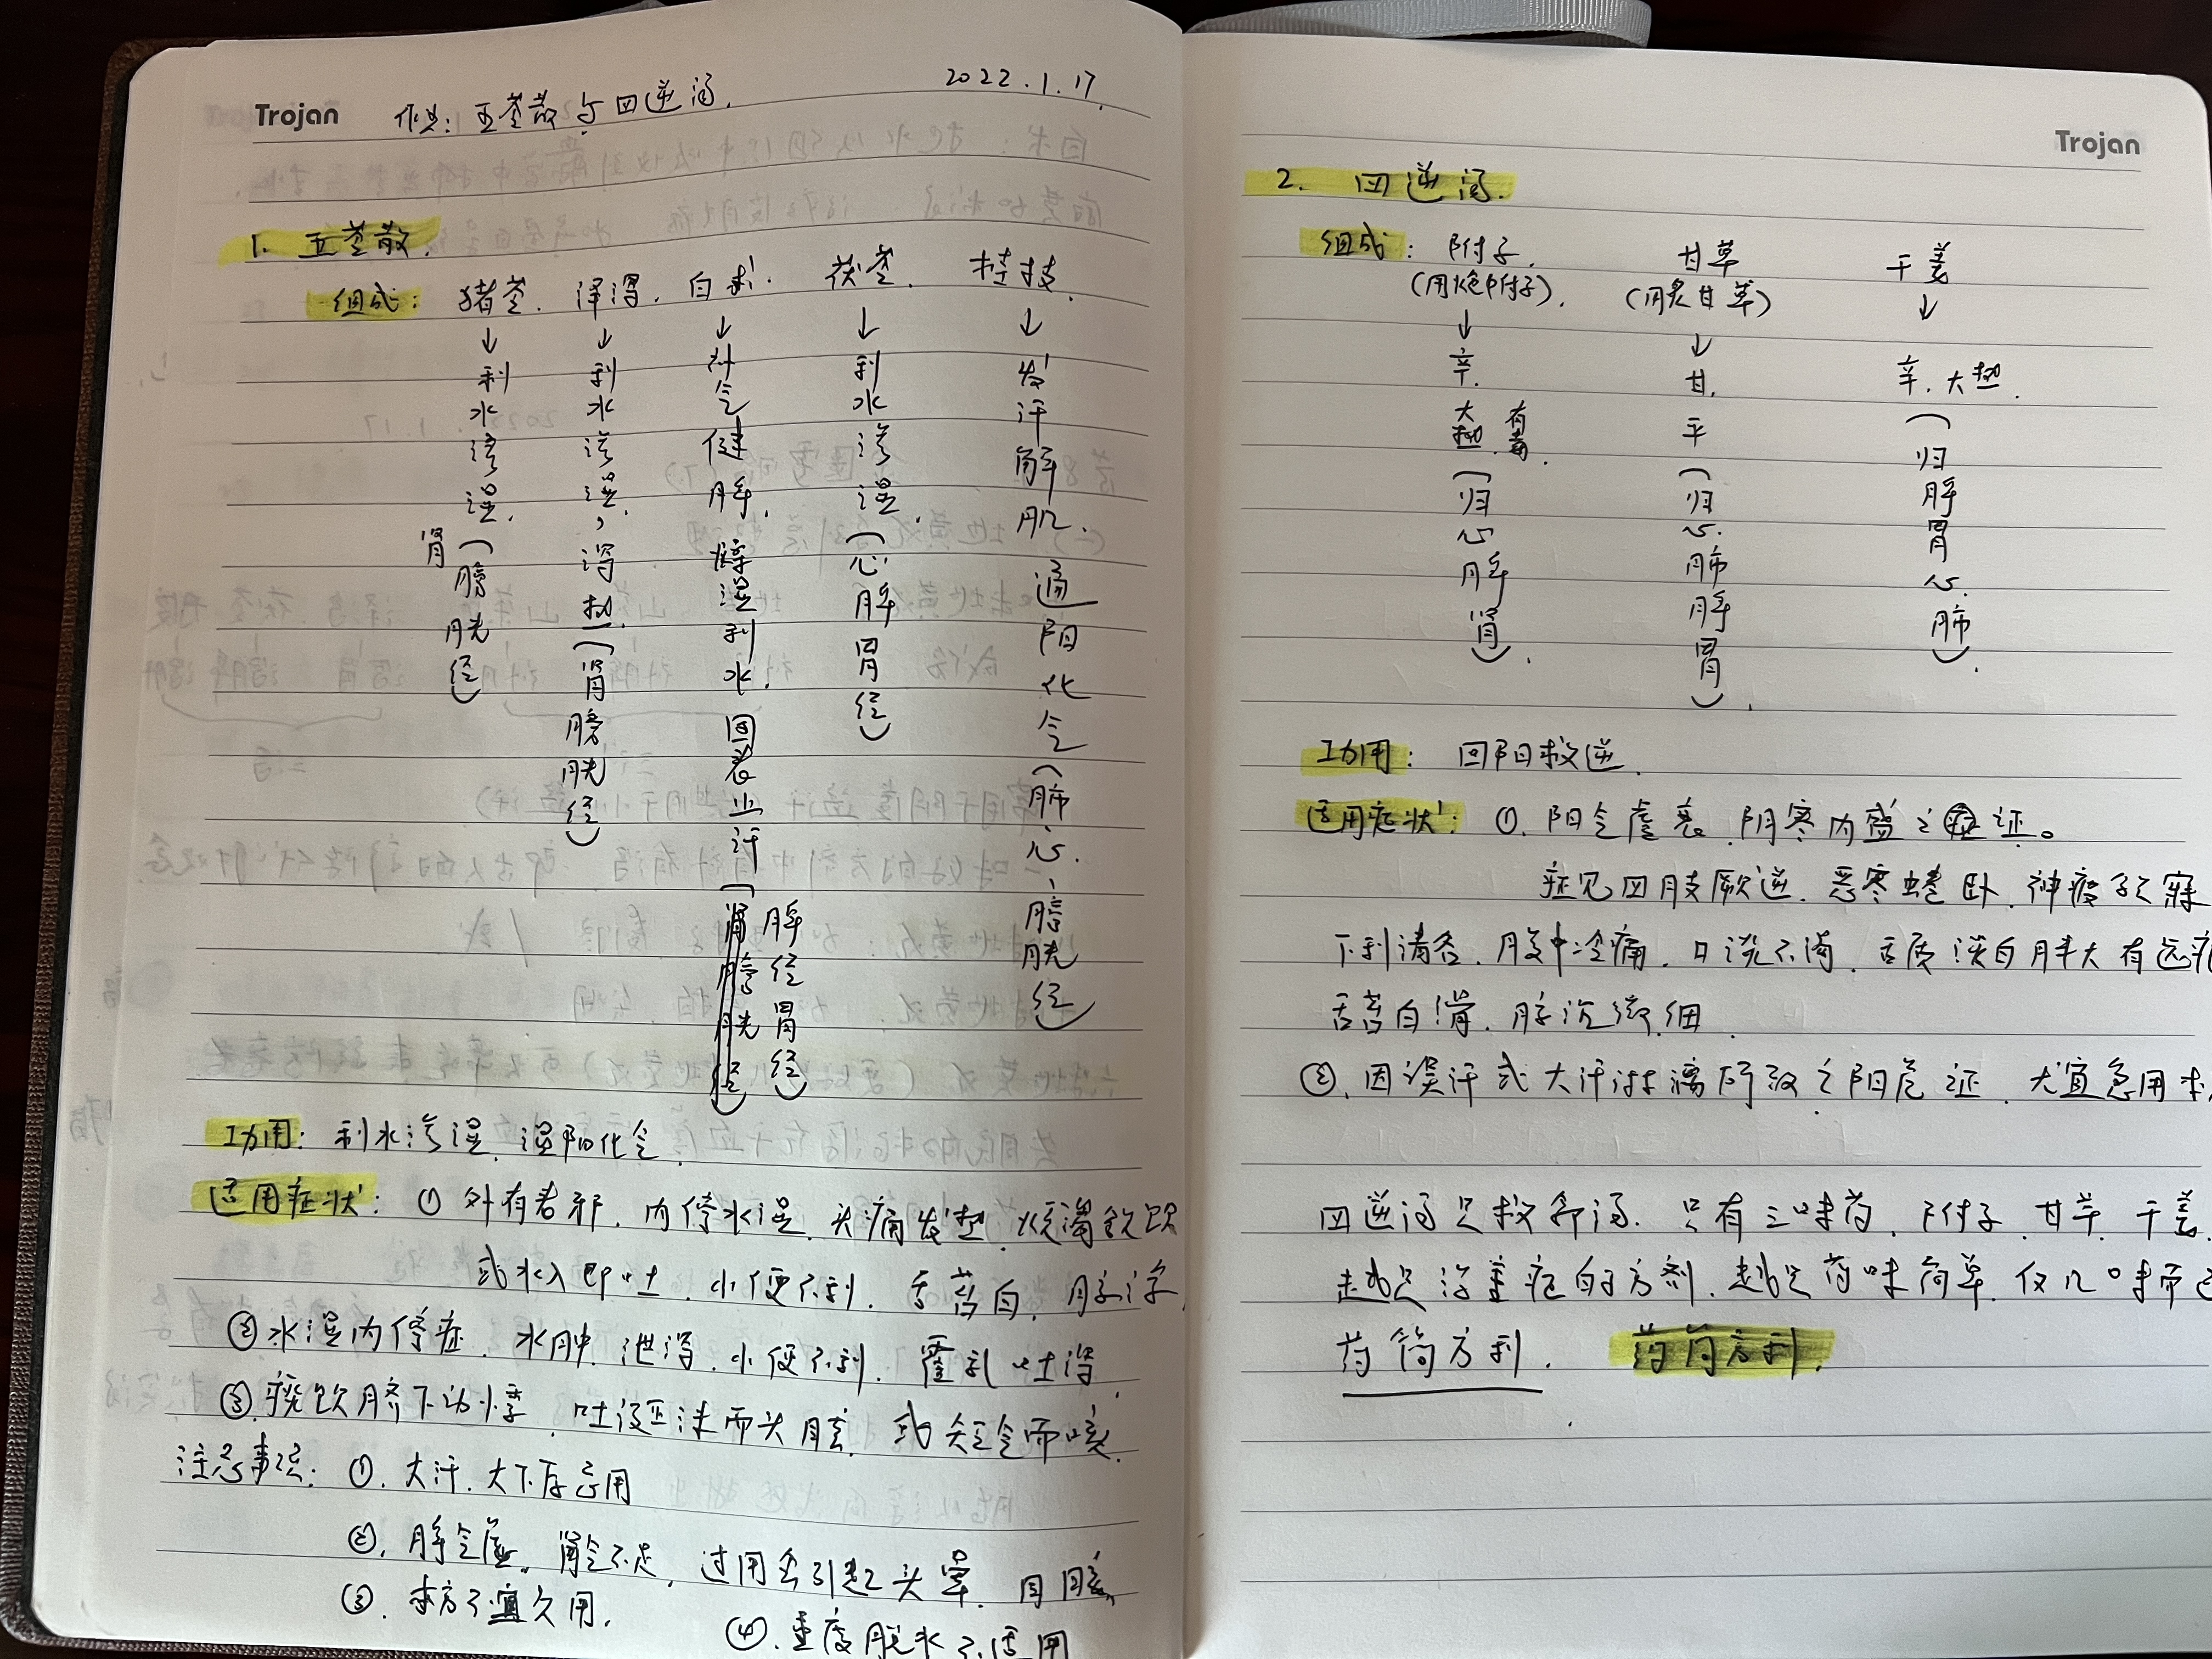 Trojan 作业：五苓散与四逆汤. 2022.1.17.
1. 五苓散.
组成：猪苓. 泽泻. 白术. 茯苓. 桂枝.
↓利水渗湿.（肾膀胱经）
↓利水渗湿，泻热（肾膀胱经）
↓补气健脾. 燥湿利水. 固表止汗（脾经胃经）
↓利水渗湿.（心脾胃经）
↓发汗解肌. 通阳化气（肺心. 膀胱经）
功用：利水渗湿. 温阳化气.
适用症状：① 外有表邪. 内停水湿. 头痛发热. 烦渴欲饮
或水入即吐. 小便不利. 舌苔白. 脉浮.
②水湿内停症. 水肿. 泄泻. 小便不利. 霍乱吐泻.
③. 痰饮脐下动悸. 吐涎沫而头眩. 或短气而咳.
注意事项：①. 大汗. 大下后忌用
②. 脾气虚. 肾气不足. 过用会引起头晕. 目眩.
③. 本方不宜久用. ④. 重度脱水不适用
Trojan
2. 四逆汤.
组成：附子. 甘草 干姜
（用炮附子）. （用炙甘草）
↓辛. 大热. 有毒.（归心脾肾）.
↓甘. 平（归心. 肺脾胃）.
↓辛. 大热.（归脾胃心. 肺）.
功用：回阳救逆.
适用症状：①. 阳气虚衰. 阴寒内盛之证。
症见四肢厥逆. 恶寒蜷卧. 神疲欲寐
下利清谷. 腹中冷痛. 口淡不渴. 舌质淡白胖大有
舌苔白滑. 脉沉微细.
②. 因误汗或大汗淋漓所致之阳虚证. 尤宜急用本
四逆汤只救命汤. 只有三味药. 附子. 甘草. 干姜.
越是治重症的方剂. 越是药味简单. 仅几味而已
药简方利. 药简方利.